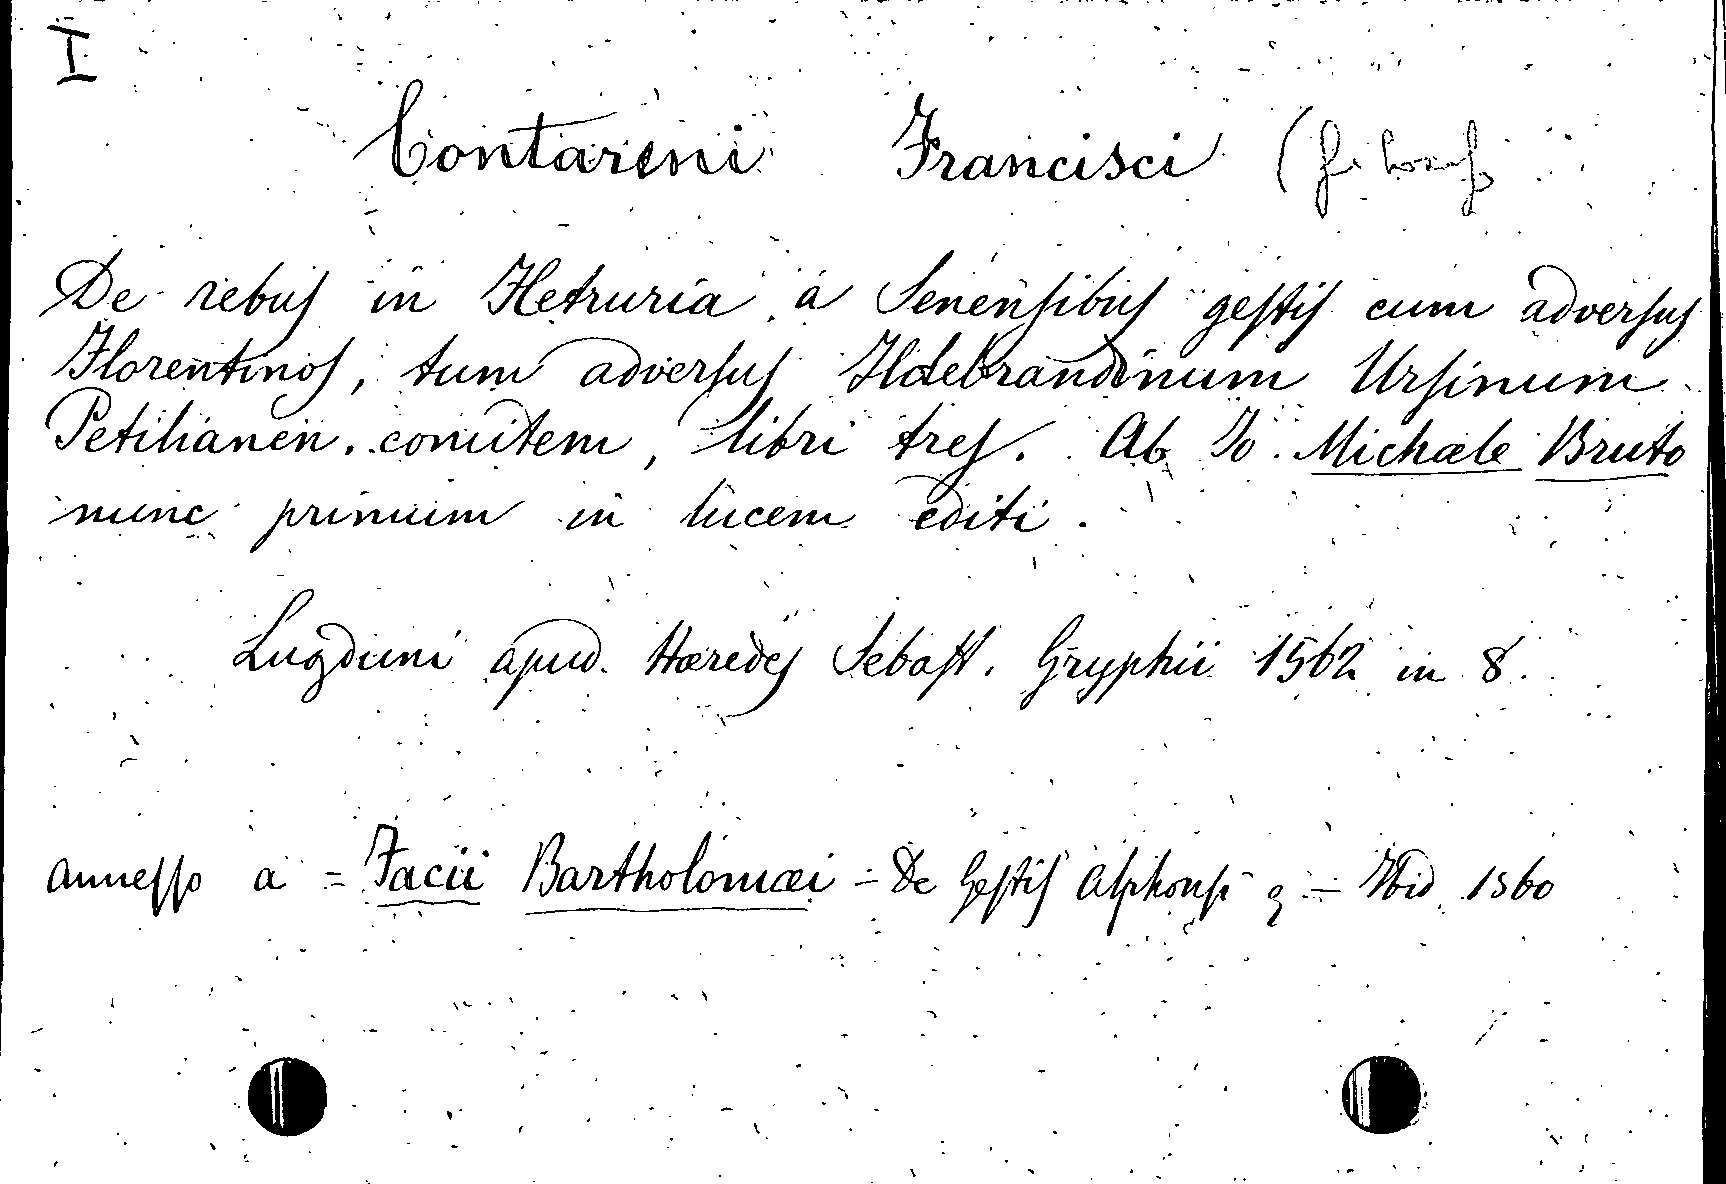 I
Contareni Francisci (filosof
De rebus in Hetruria a Senensibus gestis cum adversus
Florentinos, tum adversus Ildebrandinum Ursinum
Petilianen. comitem, libri tres. Ab Jo. Michæle Bruto
nunc primum in lucem editi.
Lugduni apud. Hæredes Sebast. Gryphii 1562 in 8.
annesso a = Facii Bartholomæi - De Gestis Alphonsi - Ibid. 1560